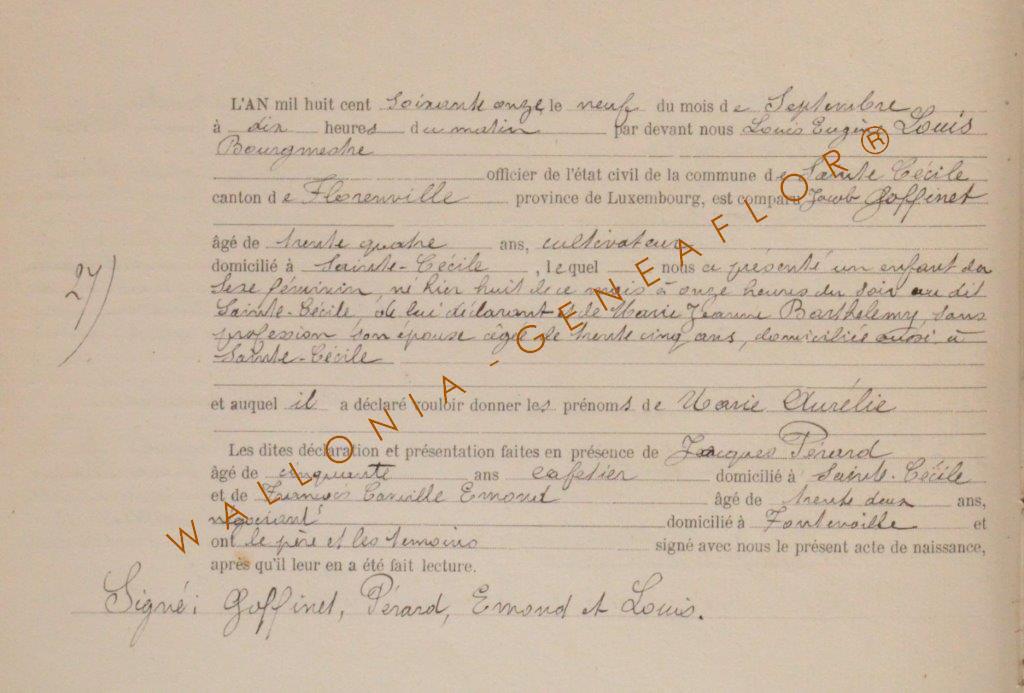 L'AN mil huit cent soixante onze le neuf du mois de Septembre
à dix heures du matin par devant nous Louis Eugène Louis
Bourgmestre
officier de l'état civil de la commune de Sainte Cécile
canton de Florenville province de Luxembourg, est comparu Jacob Goffinet
âgé de trente quatre ans, cultivateur
domicilié à Sainte-Cécile, lequel nous a présenté un enfant du
27)
Sexe féminin, né hier huit de ce mois à onze heures du soir au dit
Sainte-Cécile, de lui déclarant et de Marie Jeanne Barthelemy, sans
profession son épouse âgée de trente cinq ans, domiciliée aussi à
Sainte-Cécile
et auquel il a déclaré vouloir donner les prénoms de Marie Aurélie
Les dites déclaration et présentation faites en présence de Jacques Pérard
âgé de cinquante ans cafetier domicilié à Sainte-Cécile
et de Emond âgé de trente deux ans,
domicilié à Fontenoille et
ont le père et les temoins signé avec nous le présent acte de naissance,
après qu'il leur en a été fait lecture.
Signé: Goffinet, Pérard, Emond et Louis.
WALLONIA - GENEAFLOR®